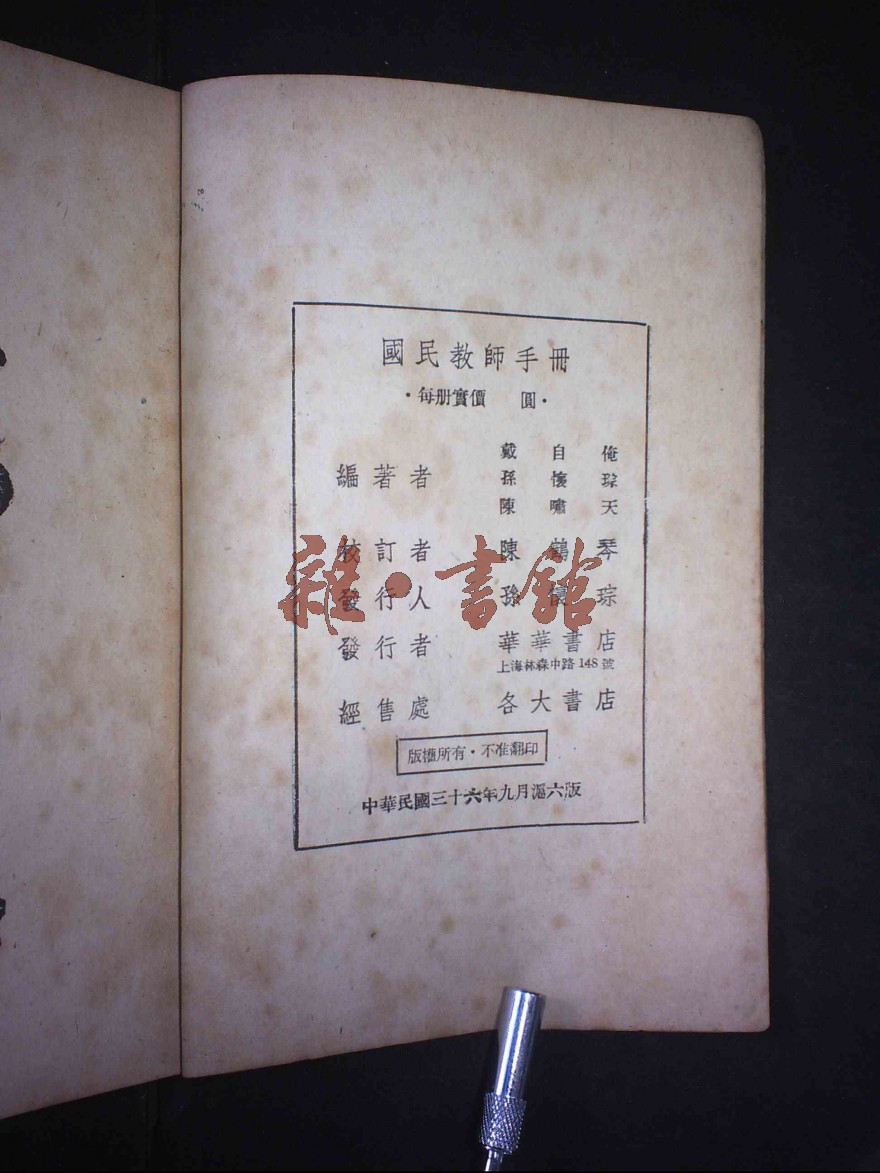 國民教師手冊
·每册實價 圓·
編著者 戴自俺
孫懷琮
陳嘯天
校訂者 陳鶴琴
發行人 孫懷琮
發行者 華華書店
上海林森中路148號
經售處 各大書店
版權所有·不准翻印
中華民國三十六年九月滬六版
雜·書館